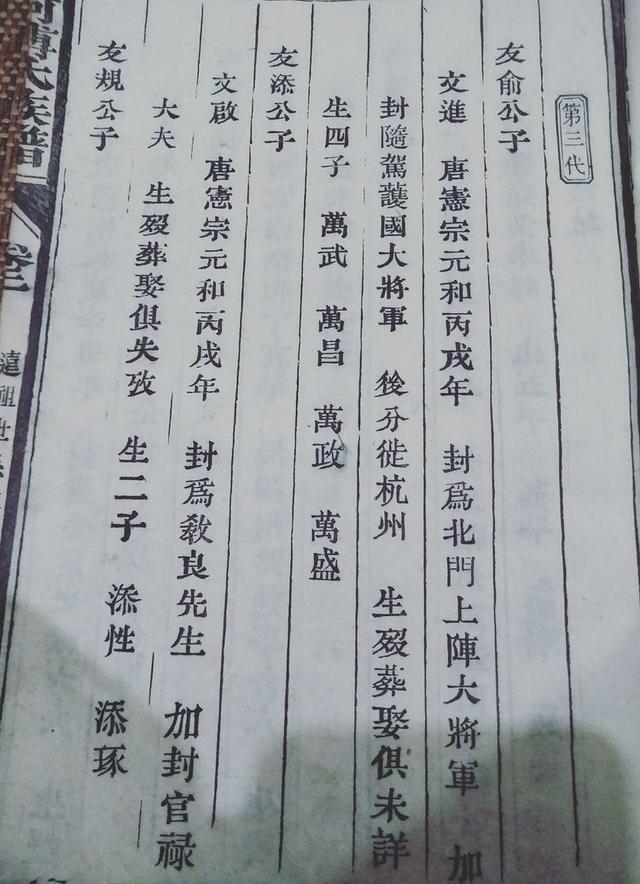 第三代
友俞公子
文進 唐憲宗元和丙戌年 封爲北門上陣大將軍 加
封隨駕護國大將軍 後分徙杭州 生歿葬娶俱未詳
生四子 萬武 萬昌 萬政 萬盛
友添公子
文啟 唐憲宗元和丙戌年 封爲教良先生 加封官祿
大夫 生歿葬娶俱失攷 生二子 添性 添琢
友規公子
氏族譜 卷二 遠祖世